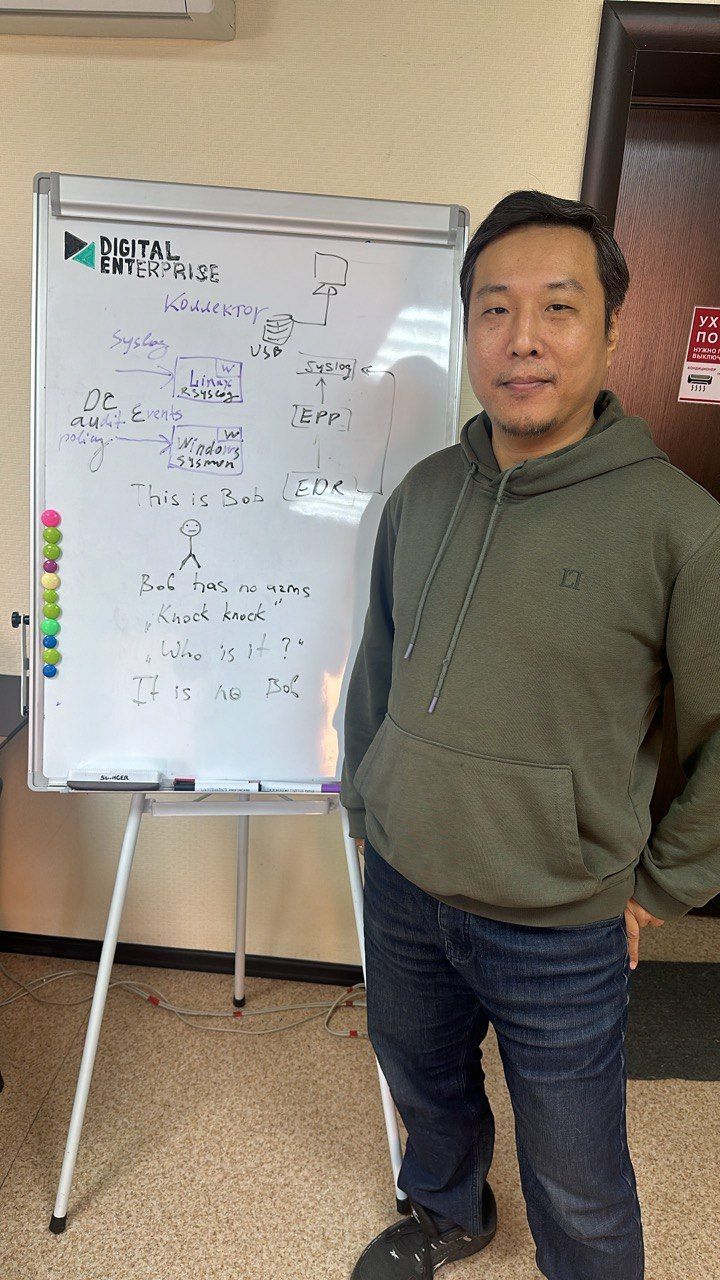 DIGITAL
ENTERPRISE
Коллектор
USB
Syslog
W
Linux
RSYSLOG
Syslog
DC
audit Events
policy
EPP
W
Windows
Sysmon
EDR
This is Bob
Bob has no arms
„Knock knock"
„Who is it?"
It is no Bob
УХ
ПО
НУЖНО
ВЫКЛЮЧ
КОНДИЦИОНЕР